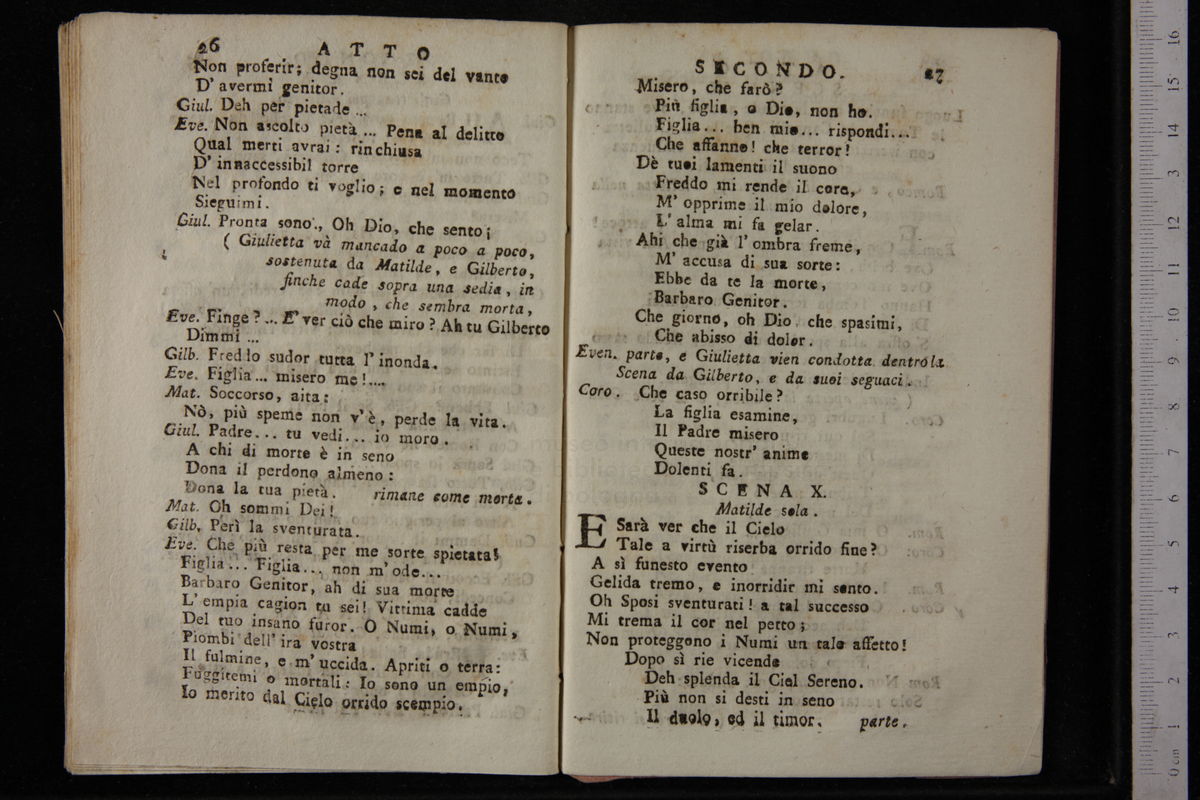 26 ATTO
Non proferir; degna non sei del vanto
D' avermi genitor.
Giul. Deh per pietade ...
Eve. Non ascolto pietà ... Pena al delitto
Qual merti avrai: rinchiusa
D' innaccessibil torre
Nel profondo ti voglio; e nel momento
Sieguimi.
Giul. Pronta sono., Oh Dio, che sento;
( Giulietta và mancado a poco a poco,
sostenuta da Matilde, e Gilberto,
finche cade sopra una sedia, in
modo, che sembra morta,
Eve. Finge? ... E' ver ciò che miro? Ah tu Gilberto
Dimmi ...
Gilb. Freddo sudor tutta l' inonda.
Eve. Figlia... misero me!....
Mat. Soccorso, aita:
Nò, più speme non v' è, perde la vita.
Giul. Padre... tu vedi... io moro.
A chi di morte è in seno
Dona il perdono almeno:
Dona la tua pietà. rimane come morta.
Mat. Oh sommi Dei!
Gilb. Perì la sventurata.
Eve. Che più resta per me sorte spietata!
Figlia... Figlia... non m' ode...
Barbaro Genitor, ah di sua morte
L' empia cagion tu sei! Vittima cadde
Del tuo insano furor. O Numi, o Numi,
Piombi dell' ira vostra
Il fulmine, e m' uccida. Apriti o terra:
Fuggitemi o mortali: Io sono un empio,
Io merito dal Cielo orrido scempio.
SECONDO. 27
Misero, che farò?
Più figlia, o Dio, non ho.
Figlia... ben mio... rispondi...
Che affanno! che terror!
Dè tuoi lamenti il suono
Freddo mi rende il core,
M' opprime il mio dolore,
L' alma mi fa gelar.
Ahi che già l' ombra freme,
M' accusa di sua sorte:
Ebbe da te la morte,
Barbaro Genitor.
Che giorno, oh Dio che spasimi,
Che abisso di dolor.
Even. parte, e Giulietta vien condotta dentro la
Scena da Gilberto, e da suoi seguaci.
Coro. Che caso orribile?
La figlia esamine,
Il Padre misero
Queste nostr' anime
Dolenti fa.
SCENA X.
Matilde sola.
E Sarà ver che il Cielo
Tale a virtù riserba orrido fine?
A sì funesto evento
Gelida tremo, e inorridir mi sento.
Oh Sposi sventurati! a tal successo
Mi trema il cor nel petto;
Non proteggono i Numi un tale affetto!
Dopo sì rie vicende
Deh splenda il Ciel Sereno.
Più non si desti in seno
Il duolo, ed il timor. parte.
0 cm 1 2 3 4 5 6 7 8 9 10 11 12 13 14 15 16